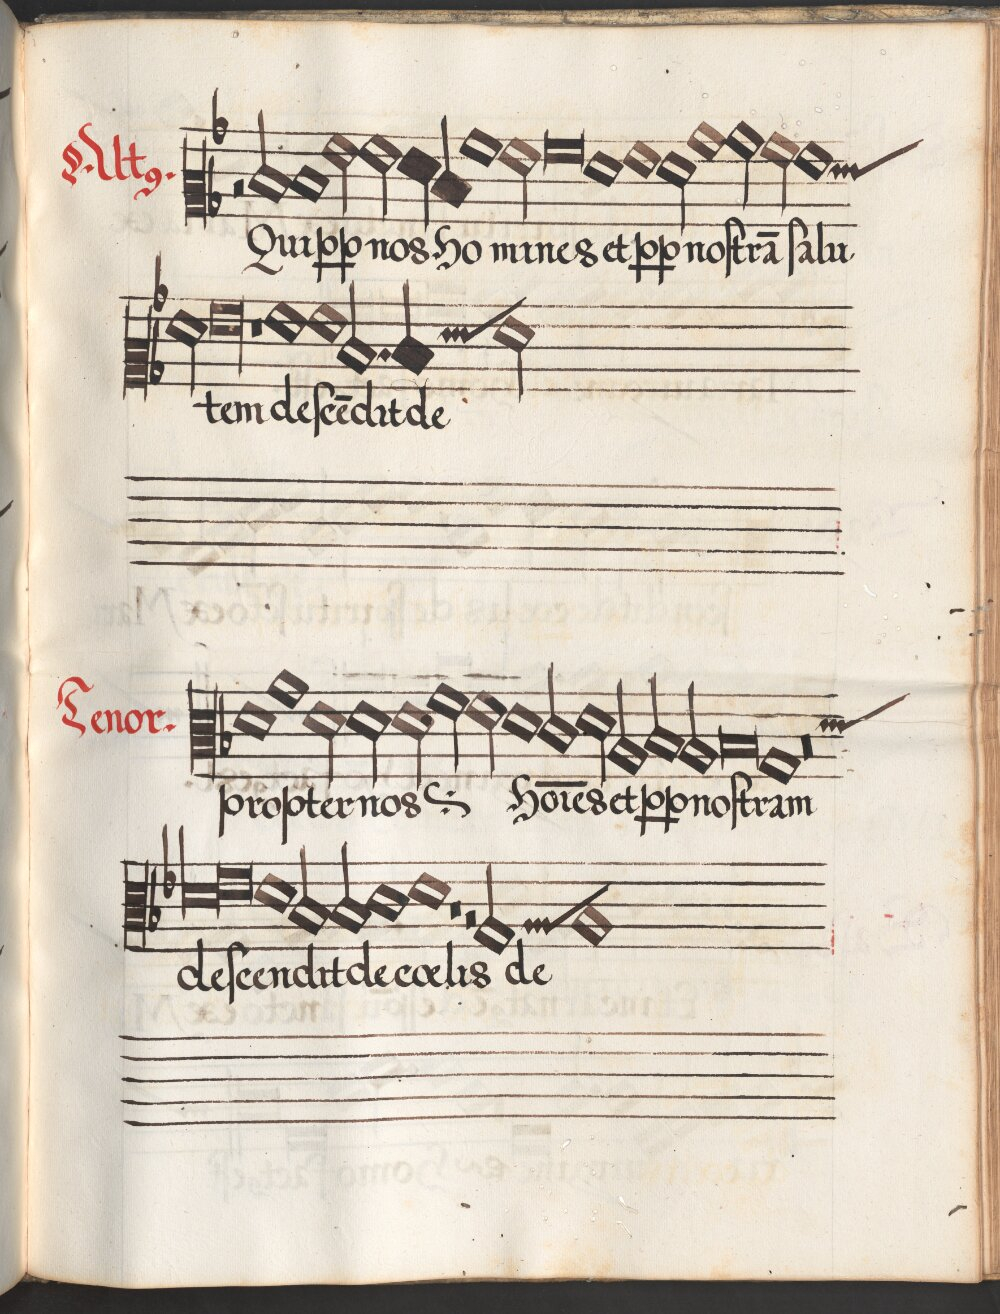 Alt9.
Qui pp nos Ho mines et pp nostrā salu.
tem descēdit de
Tenor.
propter nos Hoīes et pp nostram
descendit de cœlis de